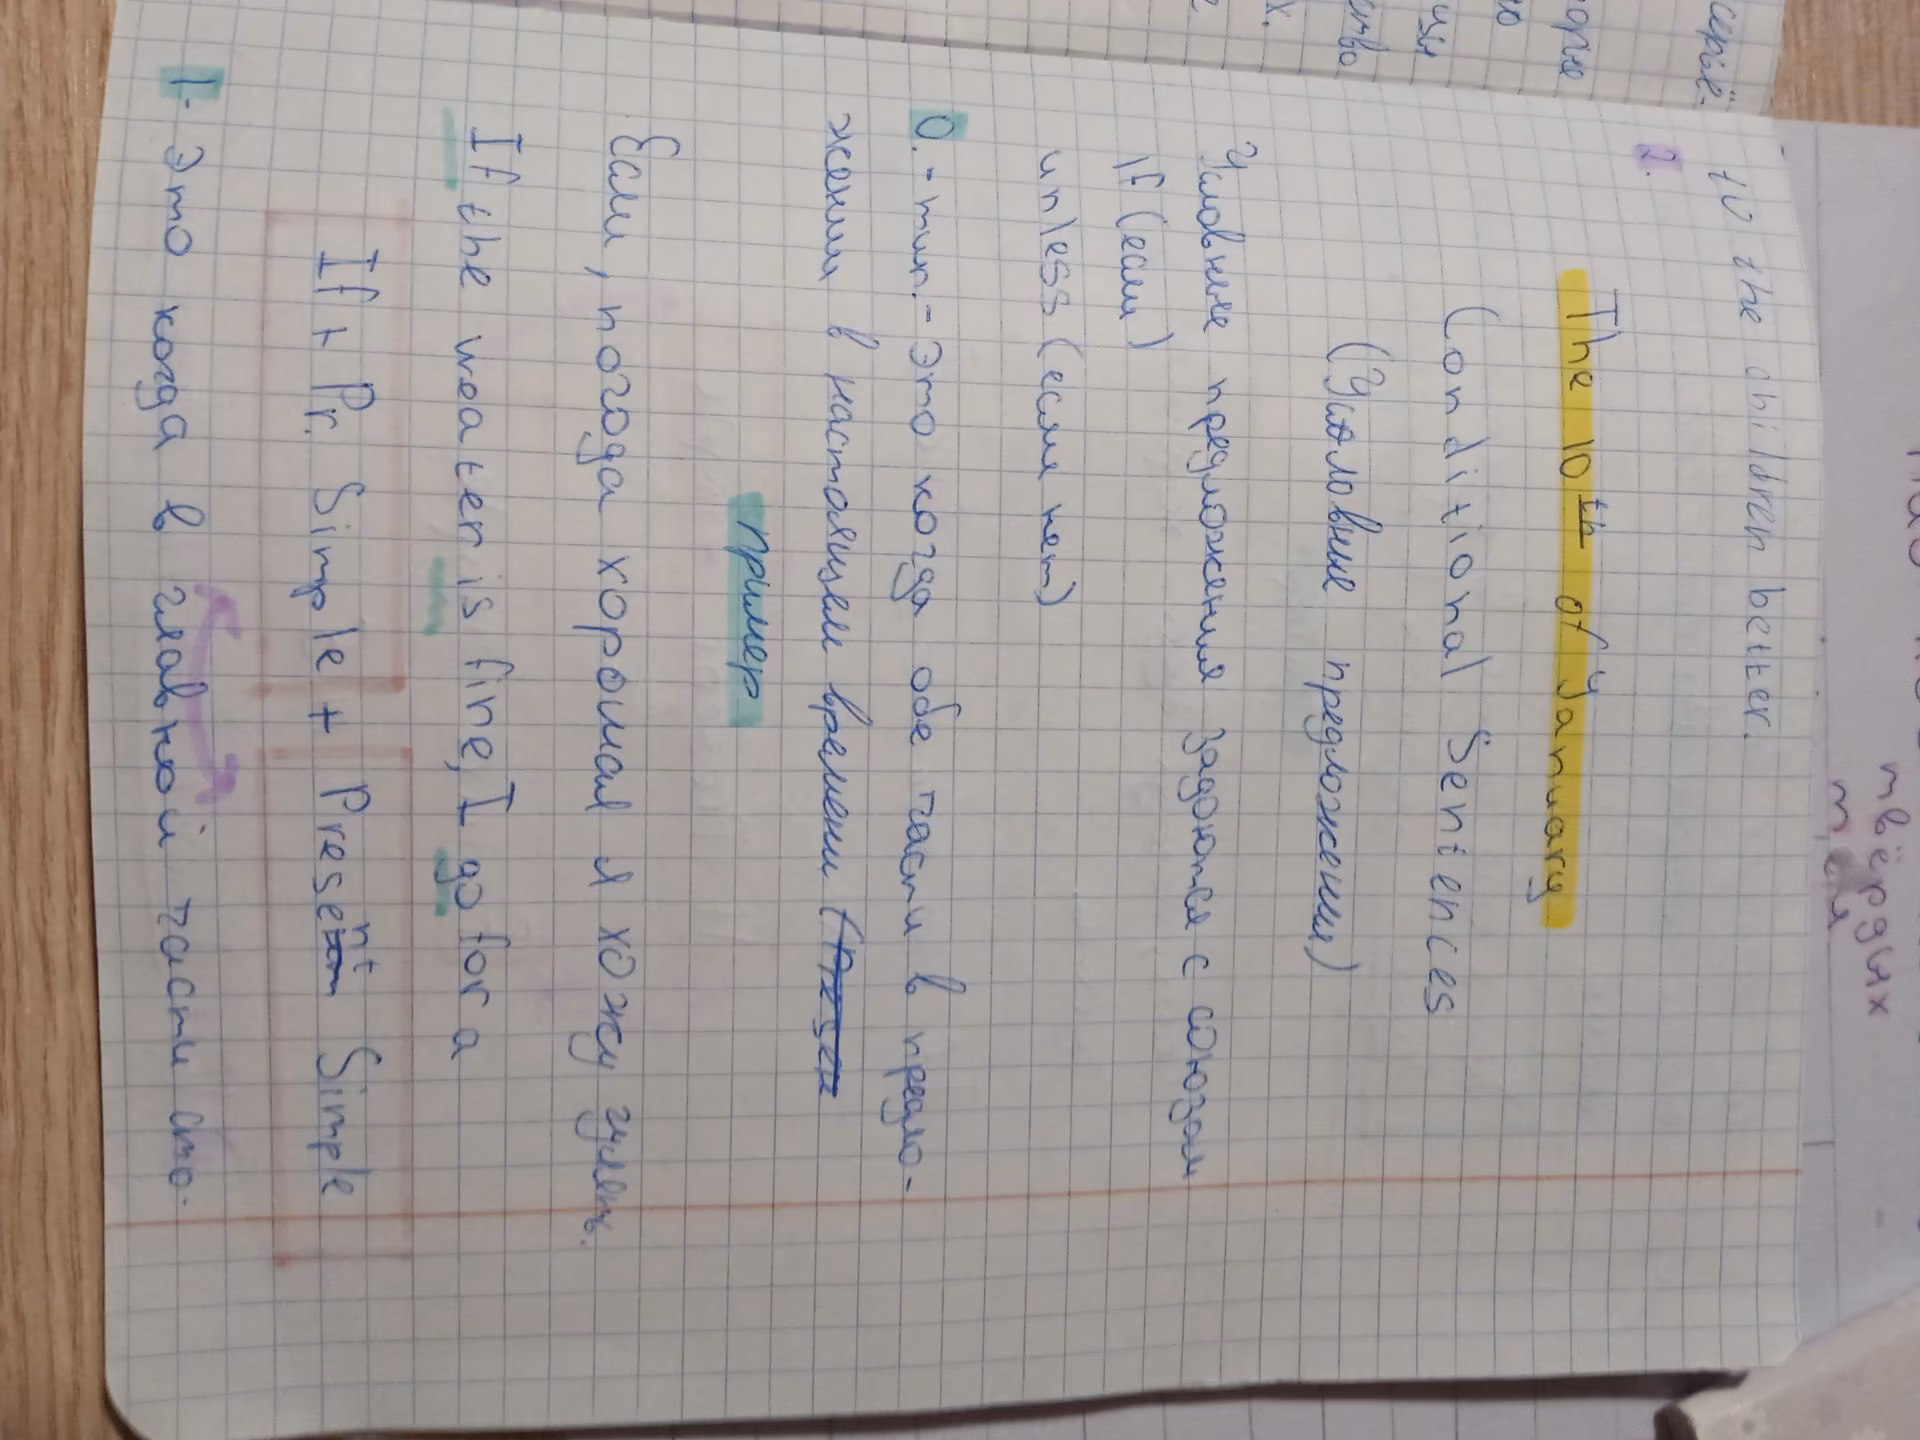 to the children better.
2.
The 10th of January
Conditional Sentences
(Условные предложения)
Условные предложения задоются с союзом
if (если)
unless (если нет)
0. - тип. - Это когда обе части в предло-
жении в настоящем времени (Presen
пример
Если, погода хорошая я хожу гулять.
If the weater is fine, I go for a
If + Pr. Simple + Present Simple
1. Это когда в главной части сто.
серьё-
ство
х.
твёрдых